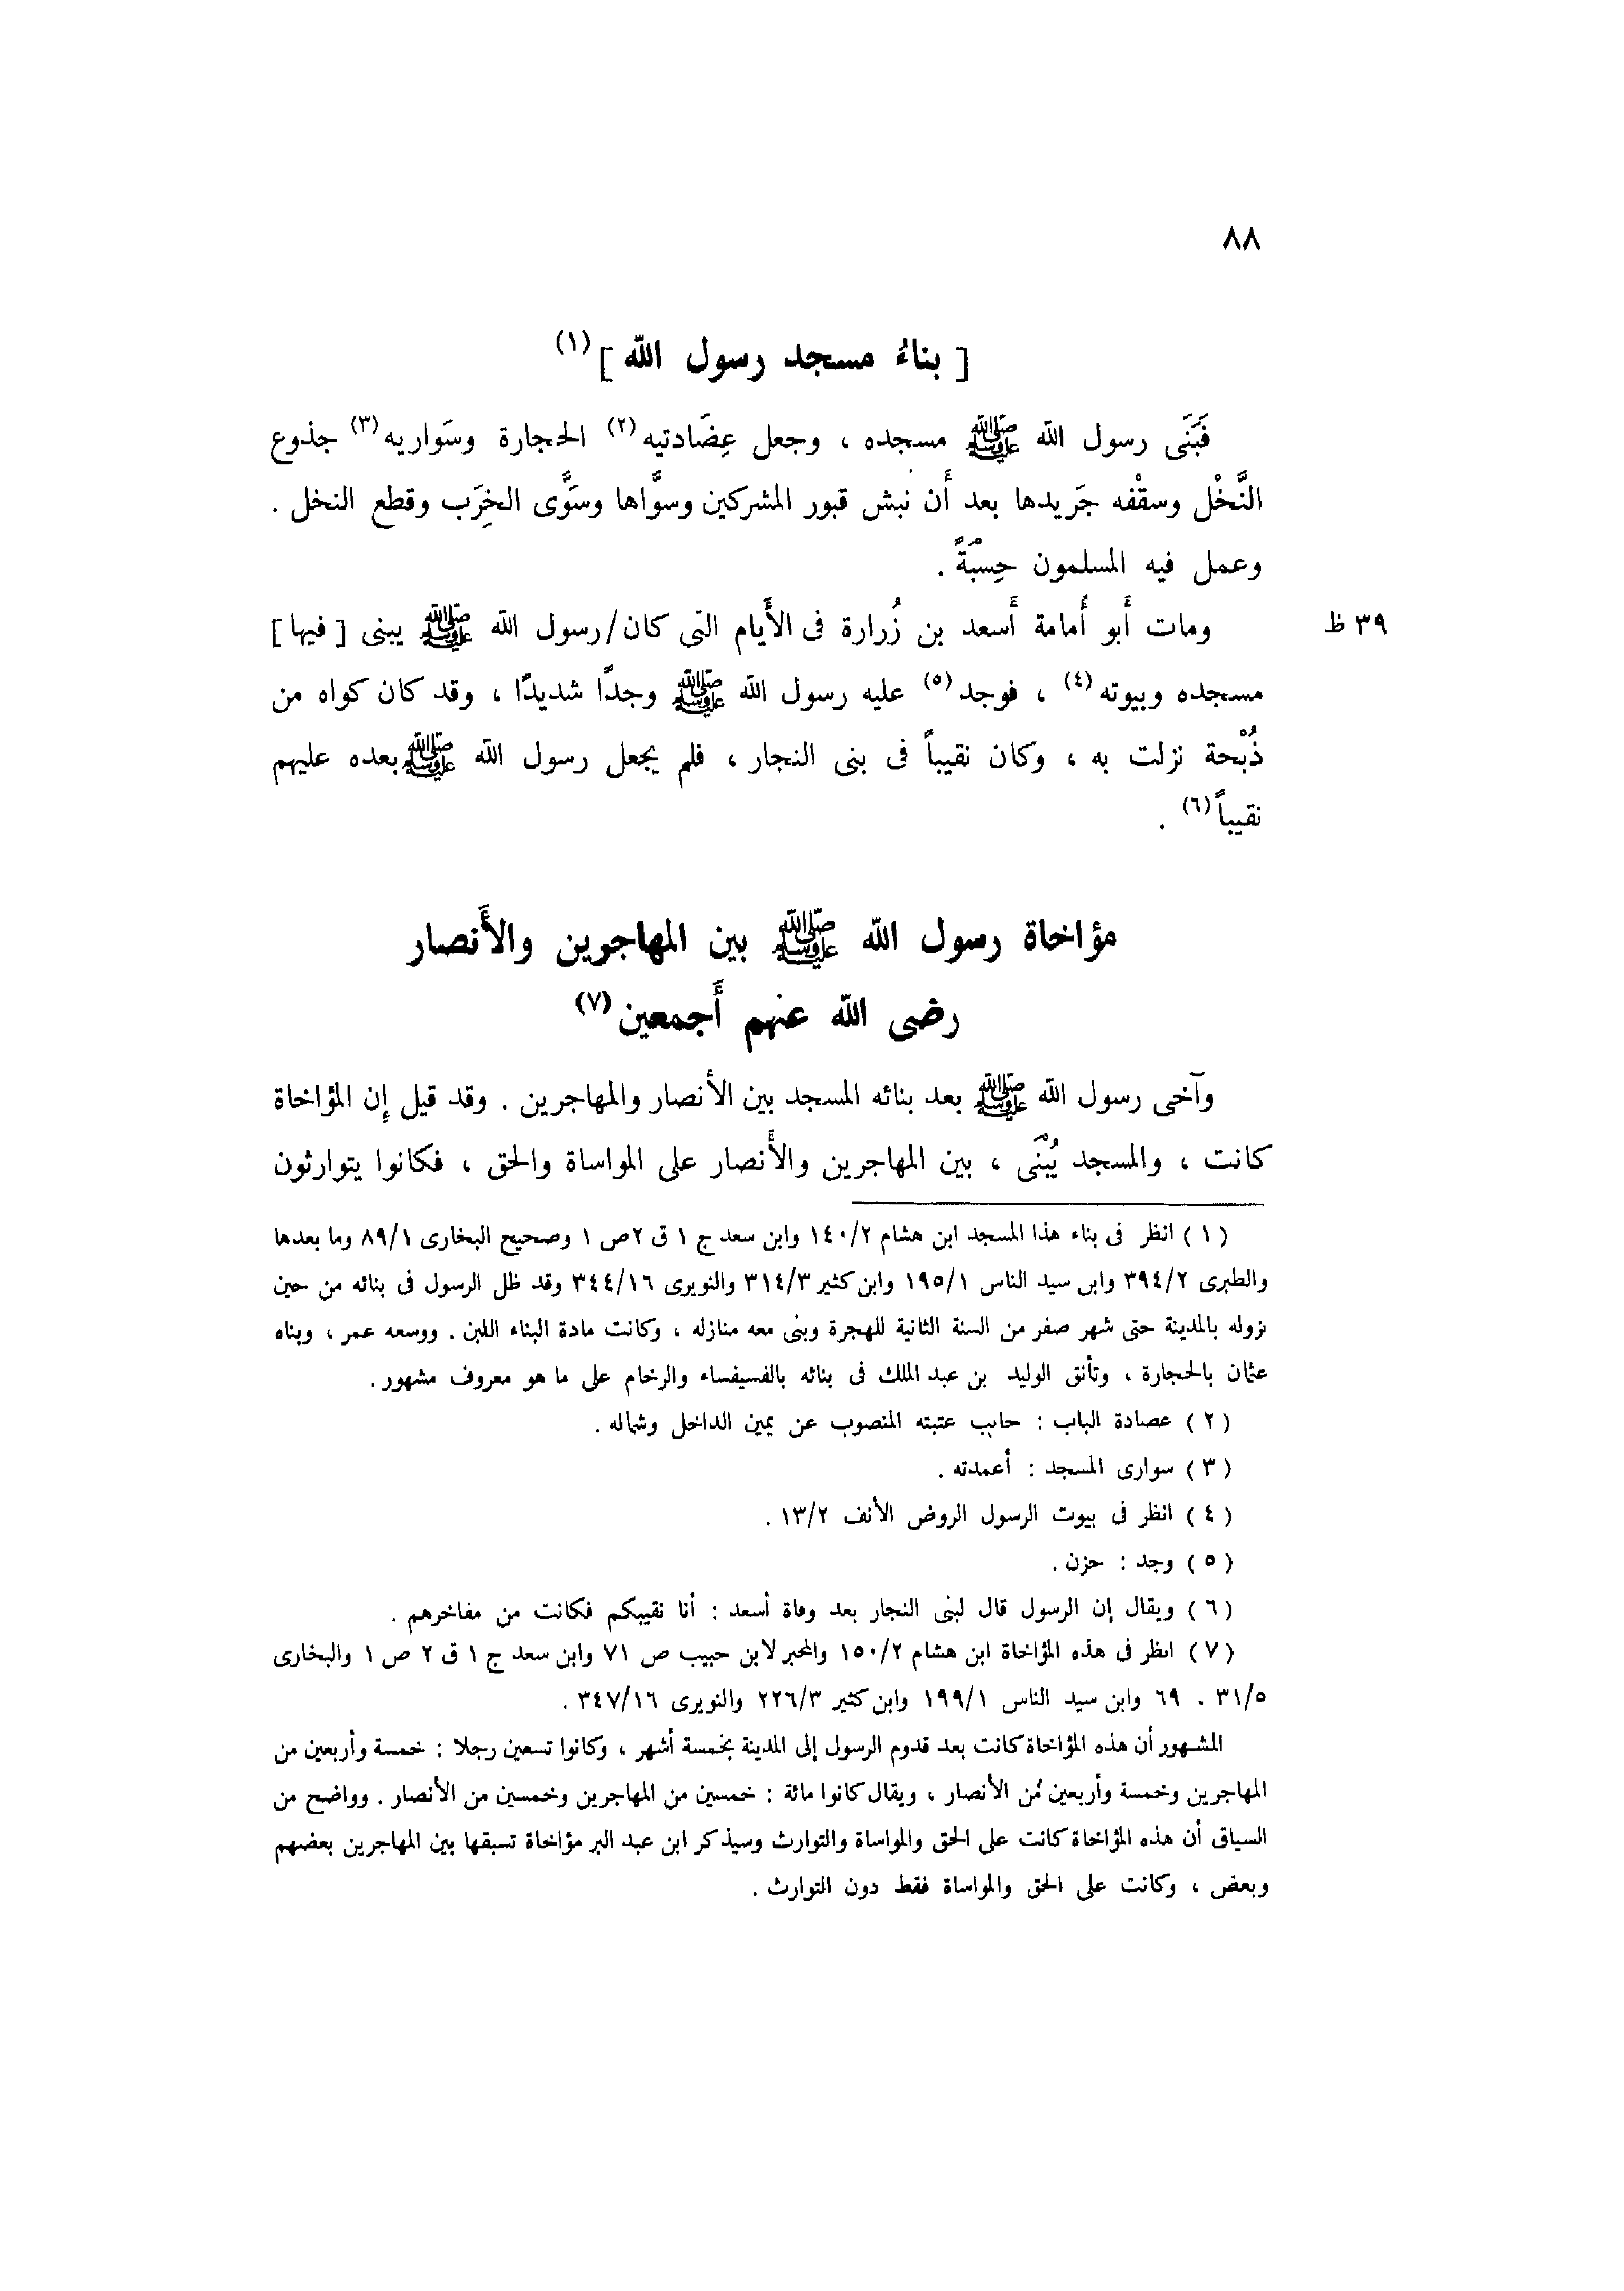 ٨٨
[ بناءُ مسجد رسول الله ](١)
فَبَنَى رسول الله ﷺ مسجده ، وجعل عِضَادتيه(٢) الحجارة وسَواريه(٣) جذوع
النَّخْل وسقْفه جَريدها بعد أَن نبش قبور المشركين وسوَّاها وسَوَّى الخِرَب وقطع النخل .
وعمل فيه المسلمون حِسْبَةً .
ومات أَبو أُمامة أَسعد بن زُرارة فى الأَيام التى كان/رسول الله ﷺ يبنى [ فيها ]
٣٩ ظ
مسجده وبيوته(٤) ، فوجد(٥) عليه رسول الله ﷺ وجدًا شديدًا ، وقد كان كواه من
ذُبْحة نزلت به ، وكان نقيباً فى بنى النجار ، فلم يجعل رسول الله ﷺ بعده عليهم
نقيباً(٦) .
مؤاخاة رسول الله ﷺ بين المهاجرين والأَنصار
رضى الله عنهم أَجمعين(٧)
وآخى رسول الله ﷺ بعد بنائه المسجد بين الأَنصار والمهاجرين . وقد قيل إن المؤاخاة
كانت ، والمسجد يُبْنَى ، بين المهاجرين والأَنصار على المواساة والحق ، فكانوا يتوارثون
( ١ ) انظر فى بناء هذا المسجد ابن هشام ١٤٠/٢ وابن سعد ج ١ ق ٢ ص ١ وصحيح البخارى ٨٩/١ وما بعدها
والطبرى ٣٩٤/٢ وابن سيد الناس ١٩٥/١ وابن كثير ٣١٤/٣ والنويرى ٣٤٤/١٦ وقد ظل الرسول فى بنائه من حين
نزوله بالمدينة حتى شهر صفر من السنة الثانية للهجرة وبنى معه منازله ، وكانت مادة البناء اللبن . ووسعه عمر ، وبناه
عثمان بالحجارة ، وتأنق الوليد بن عبد الملك فى بنائه بالفسيفساء والرخام على ما هو معروف مشهور .
( ٢ ) عضادة الباب : جانب عتبته المنصوب عن يمين الداخل وشماله .
( ٣ ) سوارى المسجد : أعمدته .
( ٤ ) انظر فى بيوت الرسول الروض الأنف ١٣/٢ .
( ٥ ) وجد : حزن .
( ٦ ) ويقال إن الرسول قال لبنى النجار بعد وفاة أسعد : أنا نقيبكم فكانت من مفاخرهم .
( ٧ ) انظر فى هذه المؤاخاة ابن هشام ١٥٠/٢ والمحبر لابن حبيب ص ٧١ وابن سعد ج ١ ق ٢ ص ١ والبخارى
٣١/٥ ، ٦٩ وابن سيد الناس ١٩٩/١ وابن كثير ٢٢٦/٣ والنويرى ٣٤٧/١٦ .
المشهور أن هذه المؤاخاة كانت بعد قدوم الرسول إلى المدينة بخمسة أشهر ، وكانوا تسعين رجلا : خمسة وأربعين من
المهاجرين وخمسة وأربعين من الأنصار ، ويقال كانوا مائة : خمسين من المهاجرين وخمسين من الأنصار . وواضح من
السياق أن هذه المؤاخاة كانت على الحق والمواساة والتوارث وسيذكر ابن عبد البر مؤاخاة تسبقها بين المهاجرين بعضهم
وبعض ، وكانت على الحق والمواساة فقط دون التوارث .